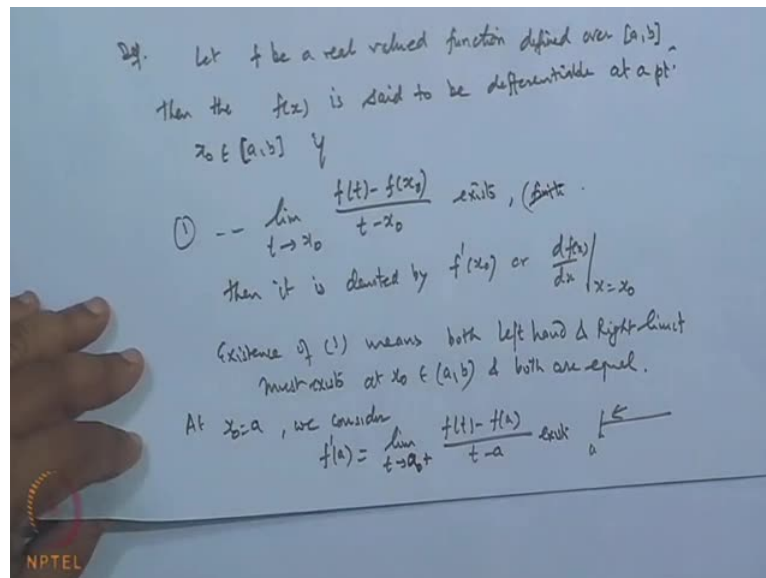 Def. Let f be a real valued function defined over [a,b]
then the f(x) is said to be differentiable at a pt.
x₀ ∈ [a,b] if
① -- lim t→x₀ (f(t) - f(x₀))/(t - x₀) exists, (finite .
then it is denoted by f'(x₀) or df(x)/dx |x=x₀
Existence of (1) means both Left hand & Right limit
must exists at x₀ ∈ (a,b) & both are equal.
At x₀=a, we consider
f'(a) = lim t→a+ (f(t) - f(a))/(t - a) exist
a
NPTEL